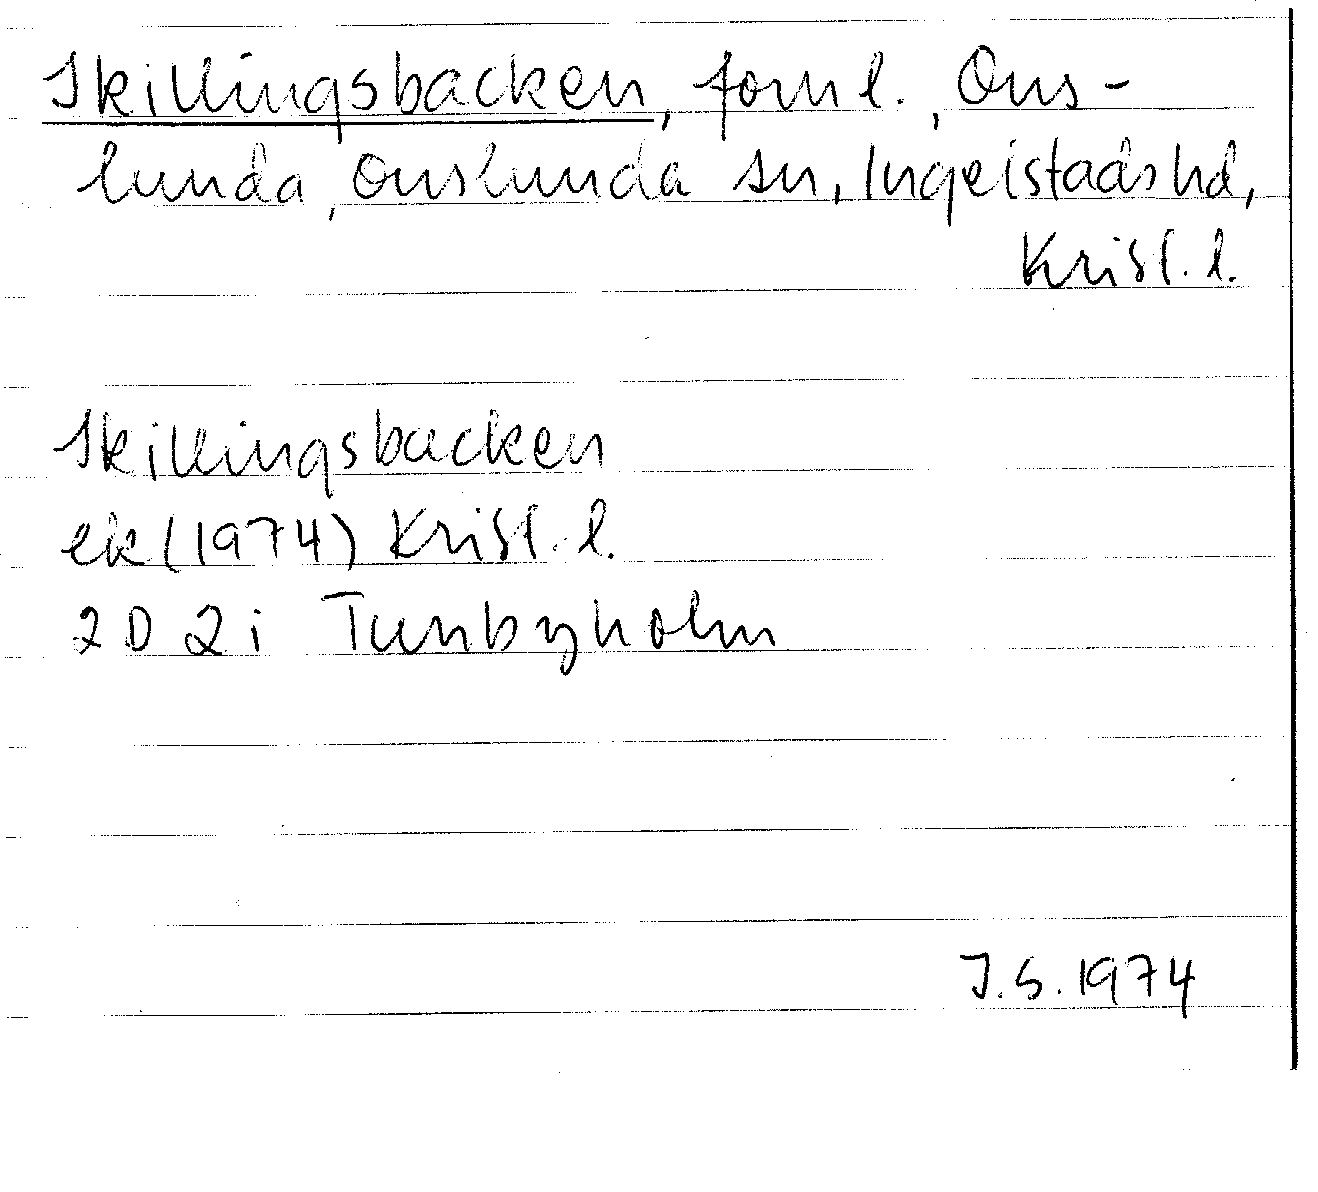 Skillingsbacken, fornl., Ons-
lunda, Onslunda sn, Ingelstads hd,
Krist. l.
Skillingsbacken
ek (1974) Krist. l.
2D 2i Tunbyholm
J.S. 1974